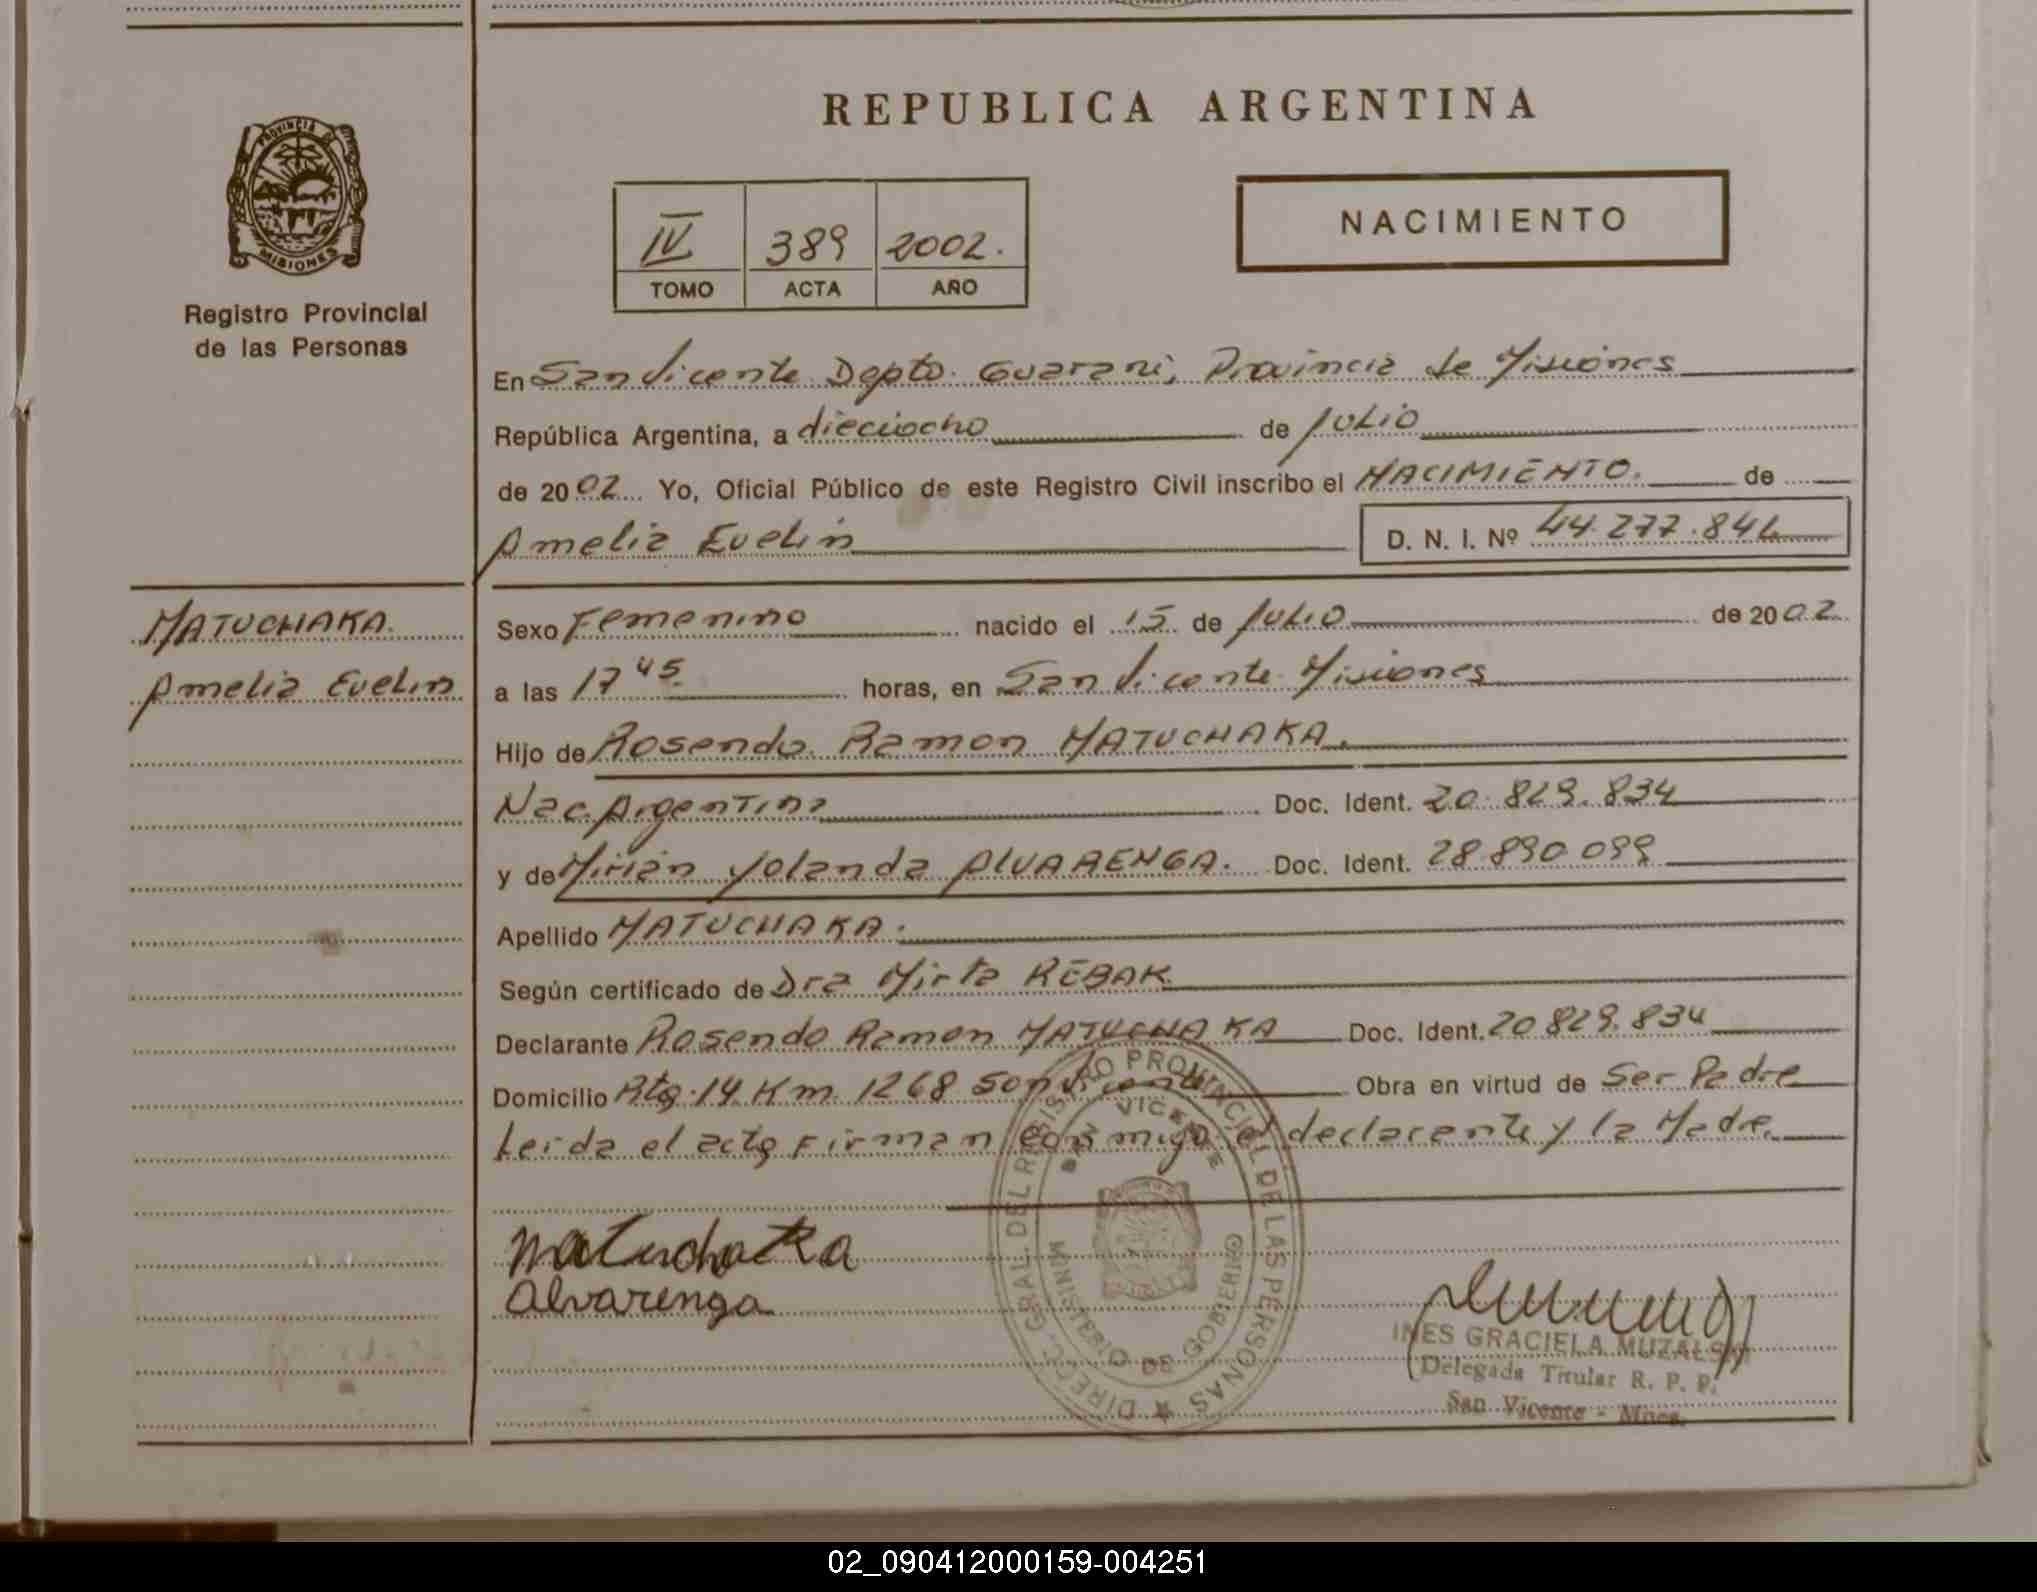 REPUBLICA ARGENTINA
PROVINCIA DE
MISIONES
Registro Provincial
de las Personas
IV 389 2002.
TOMO ACTA AÑO
NACIMIENTO
En San Vicente Depto. Guarani, Provincia de Misiones
República Argentina, a dieciocho de Julio
de 2002 Yo, Oficial Público de este Registro Civil inscribo el NACIMIENTO. de
Amelia Evelin D. N. I. Nº 44.277.844
MATUCHAKA.
Amelia Evelin
Sexo Femenino nacido el 15 de Julio de 2002
a las 17 45. horas, en San Vicente Misiones
Hijo de Rosendo Ramon MATUCHAKA.
Nac. Argentina Doc. Ident. 20.829.834
y de Mirian Yolanda AlVARENGA. Doc. Ident. 28.890.099
Apellido MATUCHAKA.
Según certificado de Dra Mirta REBAK
Declarante Rosendo Ramon MATUCHAKA Doc. Ident. 20829.834
Domicilio Rta. 14 Km. 1268 San Vicente Obra en virtud de Ser Padre
Leida el acta Firman conmigo el declarante y la Madre
DIREC. GRAL. DEL REGISTRO PROVINCIAL DE LAS PERSONAS
SAN VICENTE
MINISTERIO DE GOBIERNO
Matuchaka
Alvarenga
INES GRACIELA
Delegada Titular R. P. P.
San Vicente - Mnes.
02_090412000159-004251